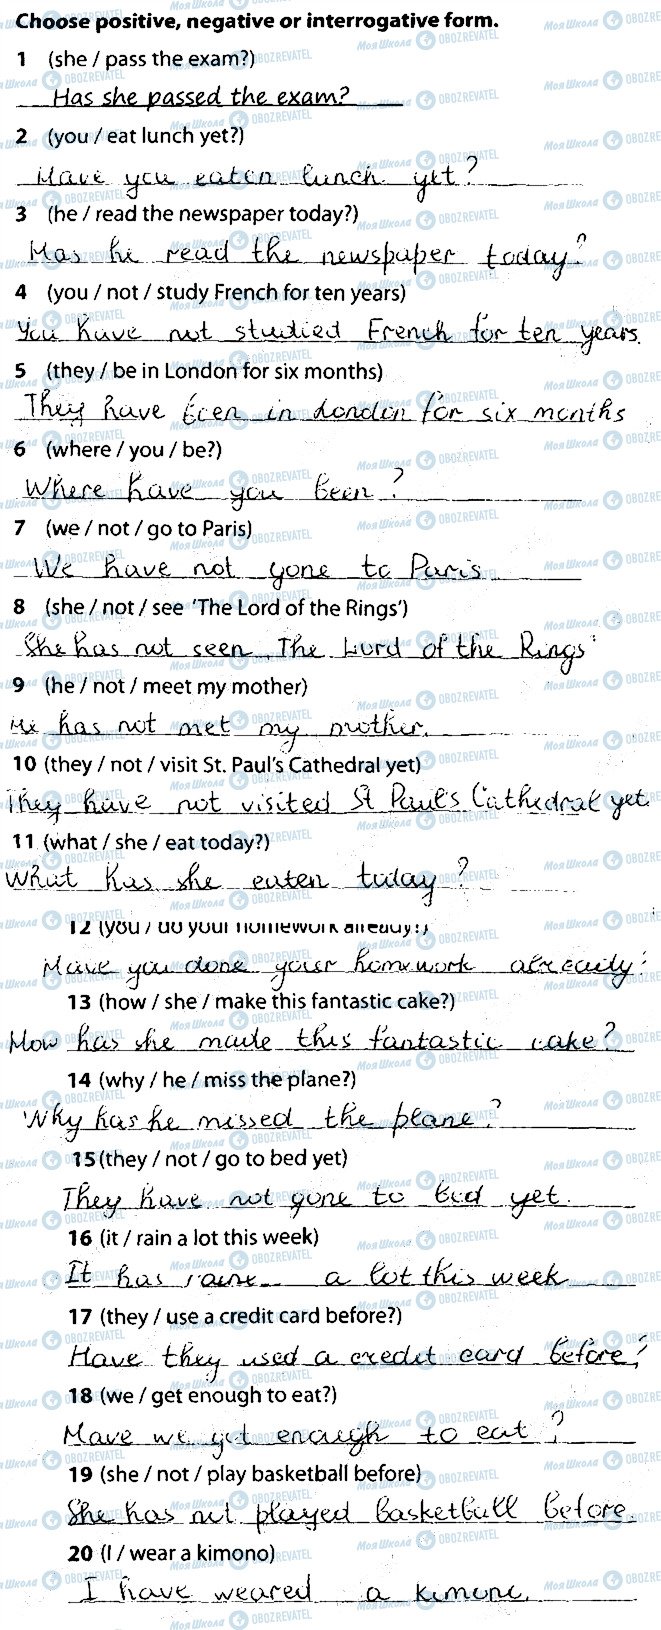 Choose positive, negative or interrogative form.
1 (she / pass the exam?)
Has she passed the exam?
2 (you / eat lunch yet?)
Have you eaten lunch yet?
3 (he / read the newspaper today?)
Has he read the newspaper today?
4 (you / not / study French for ten years)
You have not studied French for ten years.
5 (they / be in London for six months)
They have been in London for six months
6 (where / you / be?)
Where have you been?
7 (we / not / go to Paris)
We have not gone to Paris
8 (she / not / see 'The Lord of the Rings')
She has not seen 'The Lord of the Rings'
9 (he / not / meet my mother)
He has not met my mother.
10 (they / not / visit St. Paul's Cathedral yet)
They have not visited St Paul's Cathedral yet.
11 (what / she / eat today?)
What has she eaten today?
12 (you / do your homework already?)
Have you done your homework already?
13 (how / she / make this fantastic cake?)
How has she made this fantastic cake?
14 (why / he / miss the plane?)
Why has he missed the plane?
15 (they / not / go to bed yet)
They have not gone to bed yet.
16 (it / rain a lot this week)
It has a lot this week
17 (they / use a credit card before?)
Have they used a credit card before?
18 (we / get enough to eat?)
Have we got enough to eat?
19 (she / not / play basketball before)
She has not played basketball before.
20 (I / wear a kimono)
I have weared a kimono.
Моя Школа OBOZREVATEL